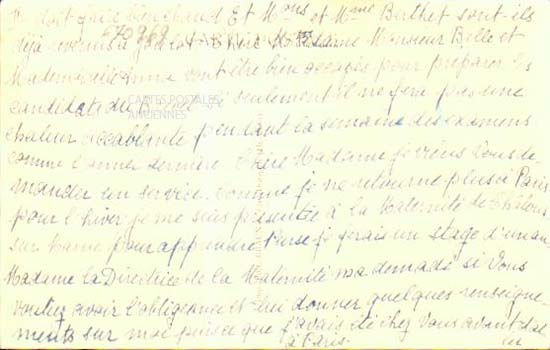 doit faire bien chaud Et Mons et Mme Berthet sont-ils
déjà revenus Madame Monsieur Belle et
Mademoiselle Anna vont être bien occupés pour préparer les
candidats du si seulement il ne fera pas une
chaleur accablante pendant la semaine des examens
comme l'année dernière. Chère Madame je viens vous de-
mander un service. Comme je ne retourne plus à Paris
pour l'hiver je me suis présentée à la Maternité de Châlons
sur Marne pour apprendre je ferais un stage d'un an
Madame la Directrice de la Maternité m'a demadé si vous
vouliez avoir l'obligeance et lui donner quelques renseigne-
ments sur moi puisque j'avais été chez vous avant
à Paris.
670969
CARTES POSTALES
ANCIENNES